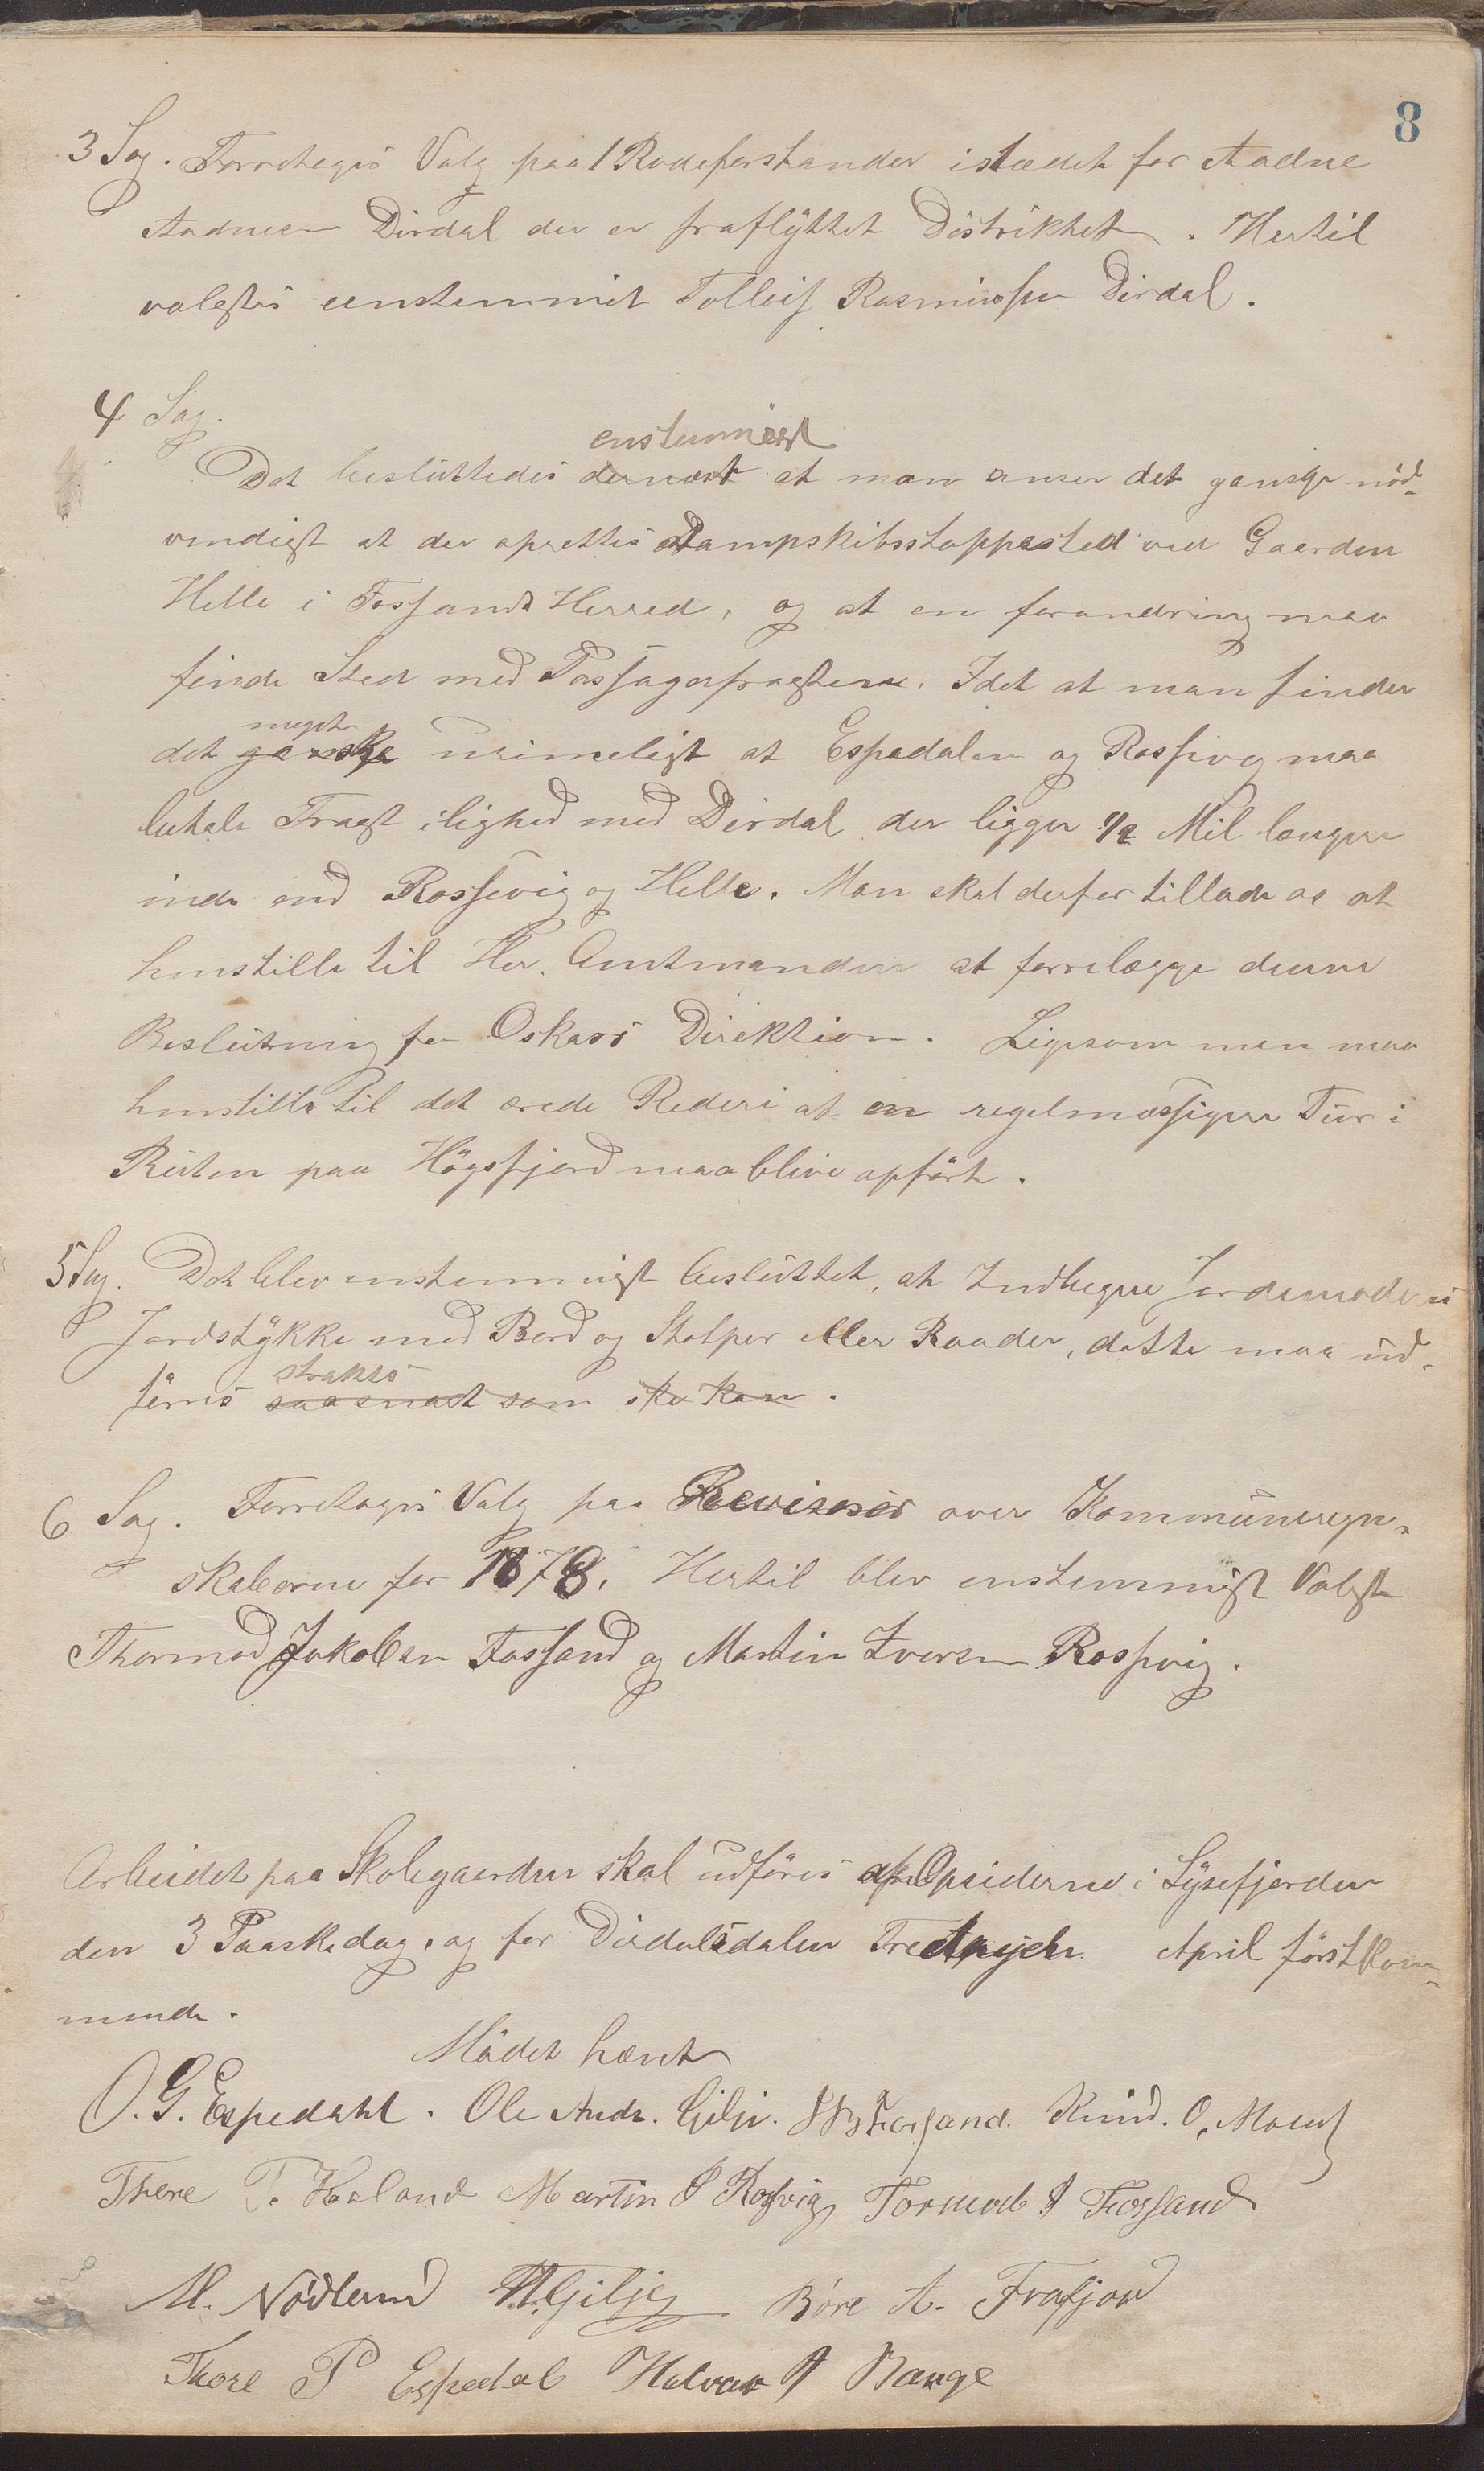 8
3 Sag. Forretages Valg paa 1 Rodeforstander istædet for Aadne
Aadnesen Dirdal der er fraflÿttet Distriktet. Hertil
valgtes eenstemmit Tolleif Rasmussen Dirdal.
4 Sag.
enstemmigt
Det besluttedes dernæst at man anser det ganske nöd-
vendigt at der oprettes Dampskibsstoppested ved Gaarden
Helle i Fossands Herred, og at en forandring maa
finde Sted med Passagerfragterne. Idet at man finder
meget
det ganske urimeligt at Espedalen og Rossivig maa
betale Fragt i lighed med Dirdal der ligger 1/2 Mil længere
inde end Rossevig og Helle. Man skal derfor tillade os at
henstille til Hr. Amtmanden at forrelægge denne
Beslutning for Oskars Direktion. Ligesom man maa
henstille til det ærede Rederi at en regelmæssigere Tur i
Ruten paa Högsfjord maa blive opfört.
5 Sag. Det blev enstemmigt besluttet, at Indhegne Jordemoderens
Jordstÿkke med Bord og Stolper eller Raader, dette maa ud-
straks
föres saasnart som ske kan.
6 Sag. Forretages Valg paa Revisorer over Kommuneregn-
skaberne for 1878. Hertil blev enstemmigt Valgt
Thormod Jakobsen Fossand og Martin Iversen Rossevig.
Arbeidet paa Skolegaarden skal udföres af Opsiderne i Lÿsefjorden
den 3 Paaskedag, og for Dirdalsdalen April förstkom-
mende.
Mödet hævet
O. G. Espedahl. Ole Andr. Gilje. Fossand. Knud. O, Maeus
Thore T. Haland Martin I Rossvig Tormod J Fossand
M. Nödland T. Gilje Böre A. Frafjord
Thore P Espedal Halvar J Bærge